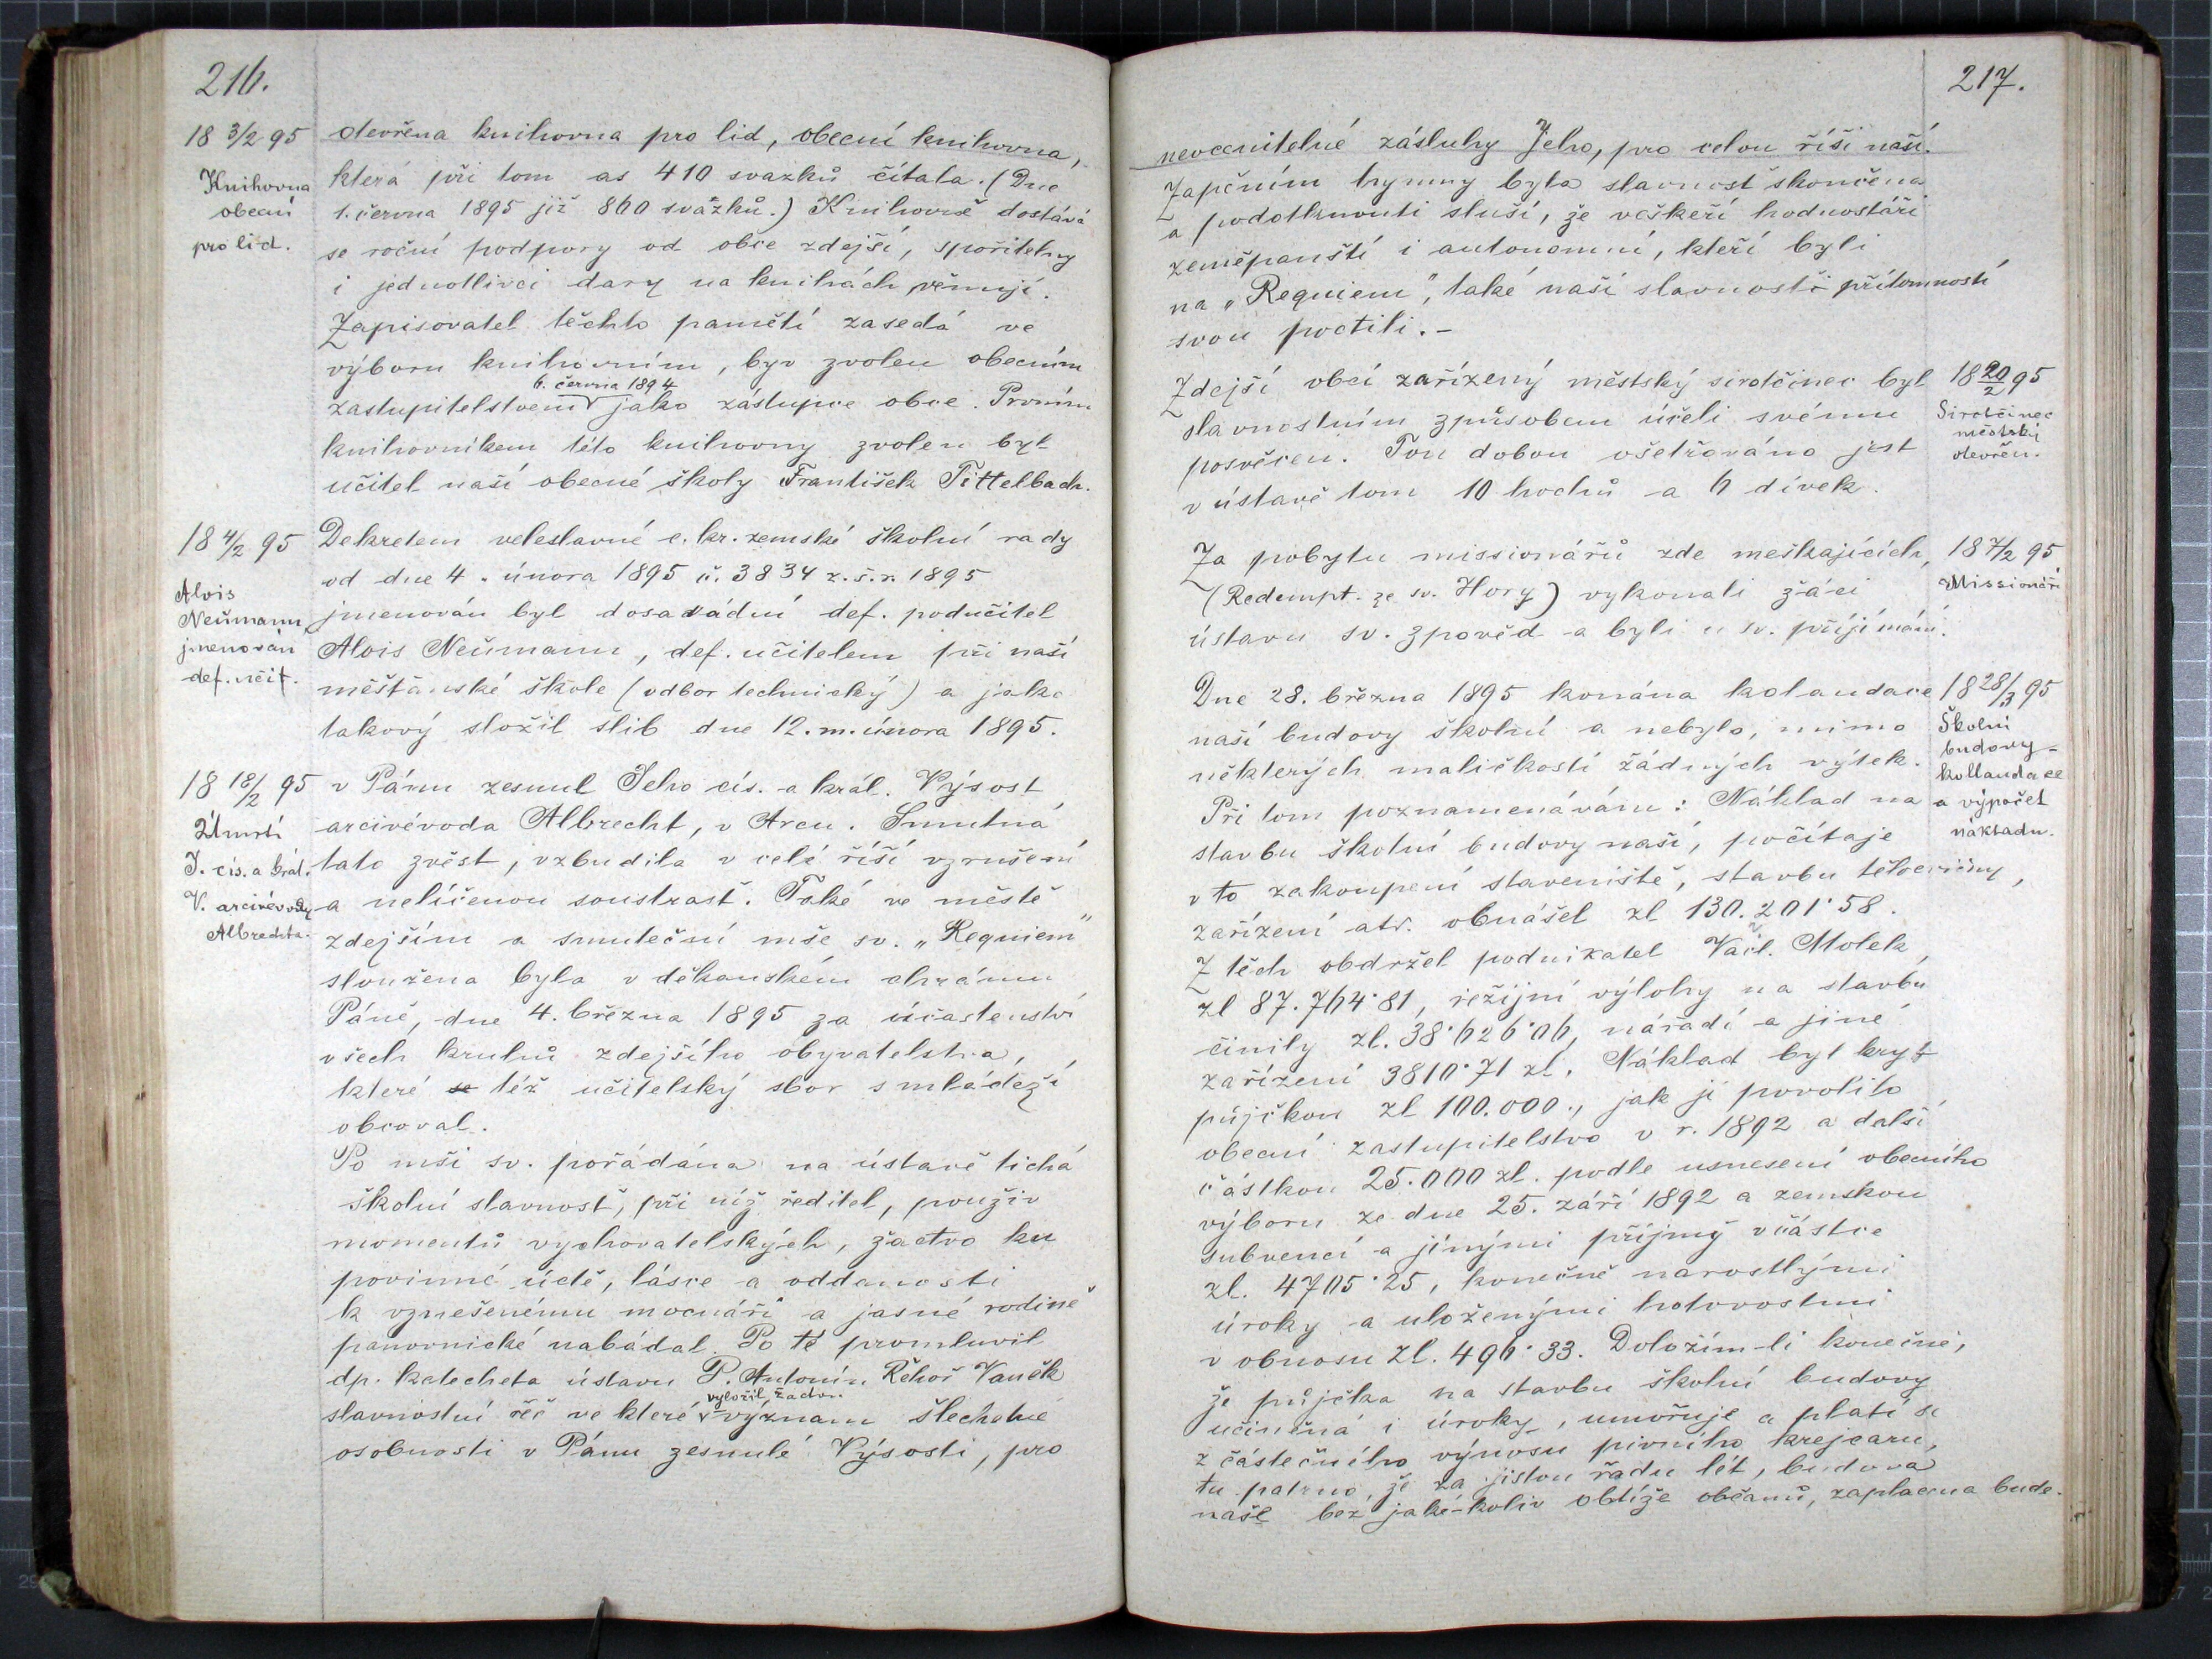 216.
18 3/2 95
Knihovna
obecní
pro lid.
otevřena knihovna pro lid, obecní knihovna,
která při tom as 410 svazků čítala. (Dne
1. června 1895 již 860 svazků.) Knihovně dostává
se roční podpory od obce zdejší, spořitelny
i jednotlivci dary na knihách věnují.
Zapisovatel těchto pamětí zasedá ve
výboru knihovním, byv zvolen obecním
6. června 1894
zastupitelstvem jako zástupce obce. Prvním
knihovníkem této knihovny zvolen byl
učitel naší obecné školy František Tittelbach.
18 4/2 95
Alois
Neumann
jmenován
def. učit.
Dekretem veleslavné c. kr. zemské školní rady
od dne 4. února 1895 č. 3834 z. š. r. 1895
jmenován byl dosavádní def. podučitel
Alois Neumann, def. učitelem při naší
měšťanské škole (odbor technický) a jako
takový složil slib dne 12. m. února 1895.
18 18/2 95
Úmrtí
J. cís. a král.
V. arcivévody
Albrechta.
v Pánu zesnul Jeho cís. a král. Výsost
arcivévoda Albrecht, v Arcu. Smutná
tato zvěst, vzbudila v celé říší vzrušení
a nelíčenou soustrast. Také ve městě
zdejším a smuteční mše sv. „Requiem"
sloužena byla v děkanském chrámu
Páně, dne 4. března 1895 za účastenství
všech kruhů zdejšího obyvatelstva,
které se též učitelský sbor s mládeží
obcoval.
Po mši sv. pořádána na ústavě tichá
školní slavnost, při níž ředitel, použiv
momentů vychovatelských, žactvo ku
povinné úctě, lásce a oddanosti
k vznešenému mocnáři a jasné rodině
panovnické nabádal. Po té promluvil
dp. katecheta ústavu P. Antonín Řehoř Vaněk
vyložil žactvu
slavnostní řeč ve které význam šlechetné
osobnosti v Pánu zesnulé Výsosti, pro
217.
neocenitelné zásluhy Jeho, pro celou říši naší.
Zapěním hymny byla slavnost skončena
a podotknouti sluší, že veškeří hodnostáři
zeměpanští i autonomní, kteří byli
na „Requiem", také naší slavnosti přítomností
svou poctili. –
Zdejší obcí zařízený městský sirotčinec byl
slavnostním způsobem účeli svému
posvěcen. Tou dobou ošetřováno jest
v ústavě tom 10 hochů a 6 dívek.
18 20/2 95
Sirotčinec
městský
otevřen.
Za pobytu missionářů zde meškajících,
(Redempt. ze sv. Hory) vykonali žáci
ústavu sv. zpověd a byli u sv. přijímání.
18 7/2 95
Missionáři
Dne 28. března 1895 konána kolaudace
naší budovy školní a nebylo, mimo
některých maličkostí žádných výtek.
Při tom poznamenávám: Náklad na
stavbu školní budovy naší, počítaje
v to zakoupení staveniště, stavbu tělocvičny,
zařízení atd. obnášel zl 130.201·58.
Z těch obdržel podnikatel Václ. Molek
zl 87.764·81, režijní výlohy na stavbu
činily zl. 38·626·06, nářadí a jiné
zařízení 3810·71 zl. Náklad byl kryt
půjčkou zl 100.000., jak ji povolilo
obecní zastupitelstvo v r. 1892 a další
částkou 25.000 zl. podle usnesení obecního
výboru ze dne 25. září 1892 a zemskou
subvencí a jinými příjmy v částce
zl. 4705·25, konečně narostlými
úroky a uloženými hotovostmi
v obnosu zl. 496·33. Doložím-li konečně,
že půjčka na stavbu školní budovy
učiněná i úroky, umořuje a platí se
z částečného výnosu pivního krejcaru,
tu patrno, že za jistou řadu lét, budova
naše bez jaké-koliv obtíže občanů, zaplacena bude.
18 28/3 95
Školní
budovy –
kollaudace
a výpočet
nákladu.